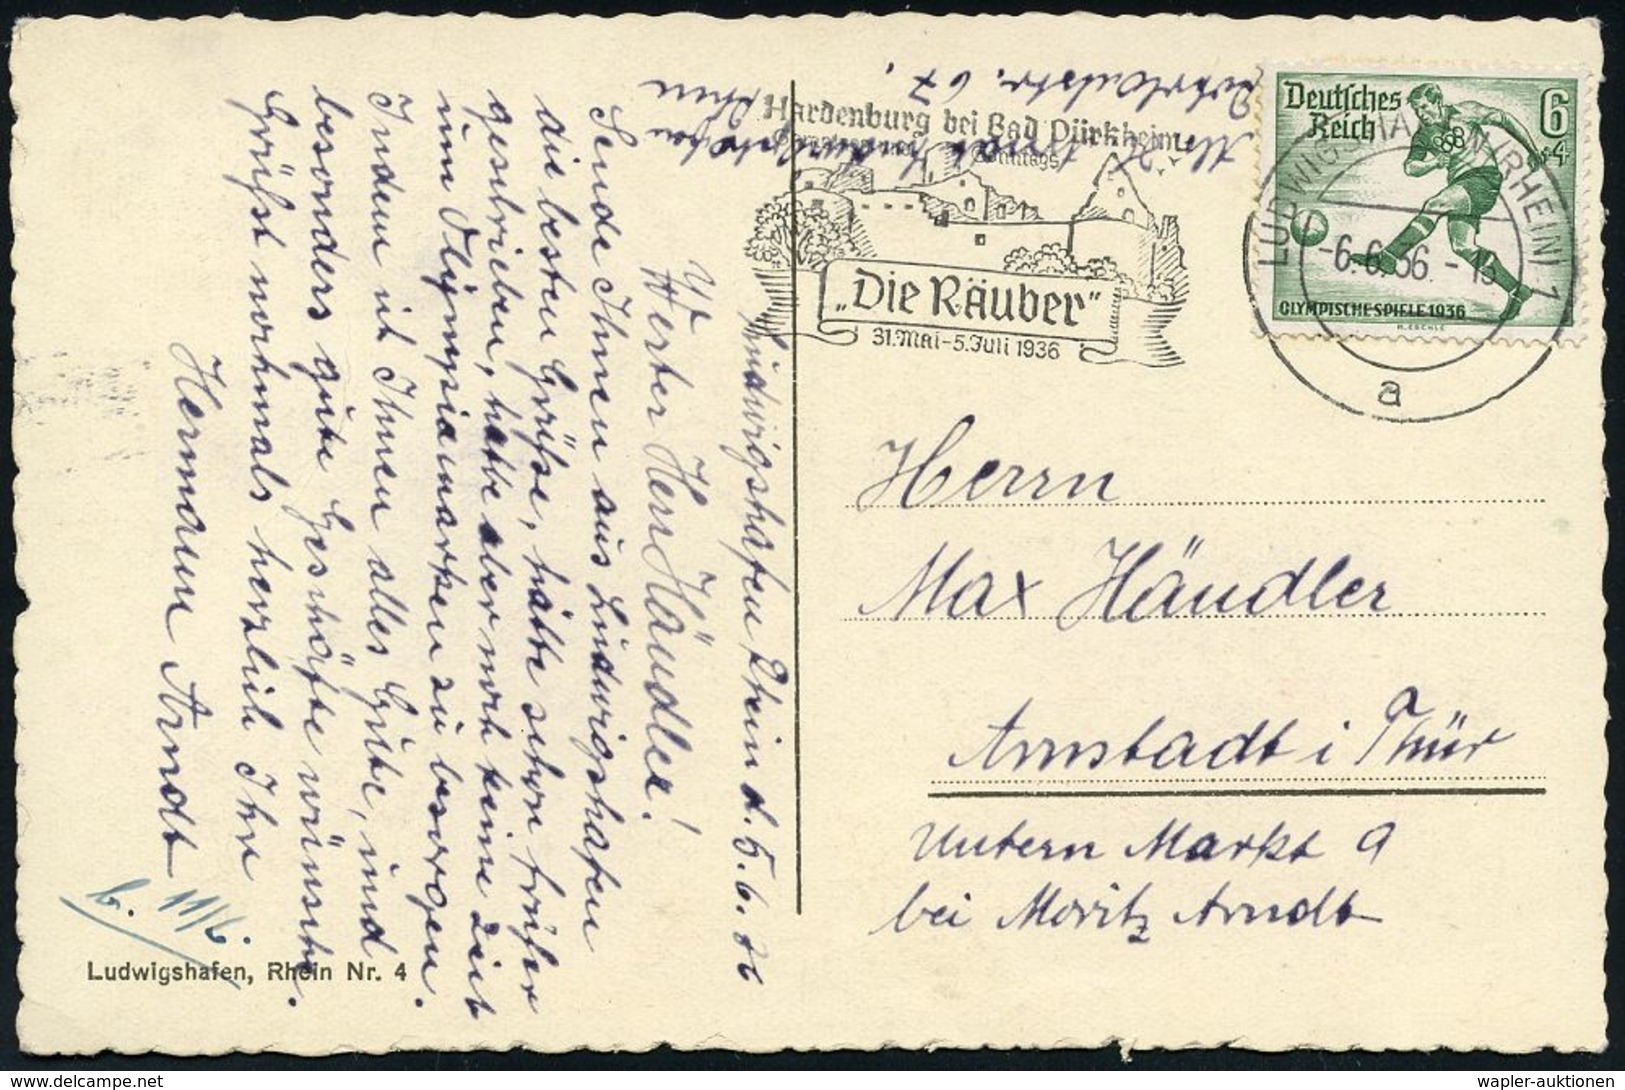 Ludwigshafen Rhein d. 5.6.36
Werter Herr Händler!
Sende Ihnen aus Ludwigshafen
die besten Grüße, hätte schon früher
geschrieben, hatte aber noch keine Zeit
um Olympiamarken zu besorgen.
Indem ich Ihnen alles Gute, und
besonders gute Geschäfte wünsche.
Grüßt nochmals herzlich Ihr
Hermann Arndt
b. 11/6.
Ludwigshafen, Rhein Nr. 4
Hardenburg bei Bad Dürkheim
Sonntags
„Die Räuber"
31. Mai - 5. Juli 1936
Deutsches
Reich
6
+4
OLYMPISCHE SPIELE 1936
LUDWIGSHAFEN (RHEIN) 1
-6.6.36.-
a
Herrn
Max Händler
Arnstadt i Thür
Untern Markt 9
bei Moritz Arndt
wapler-auktionen